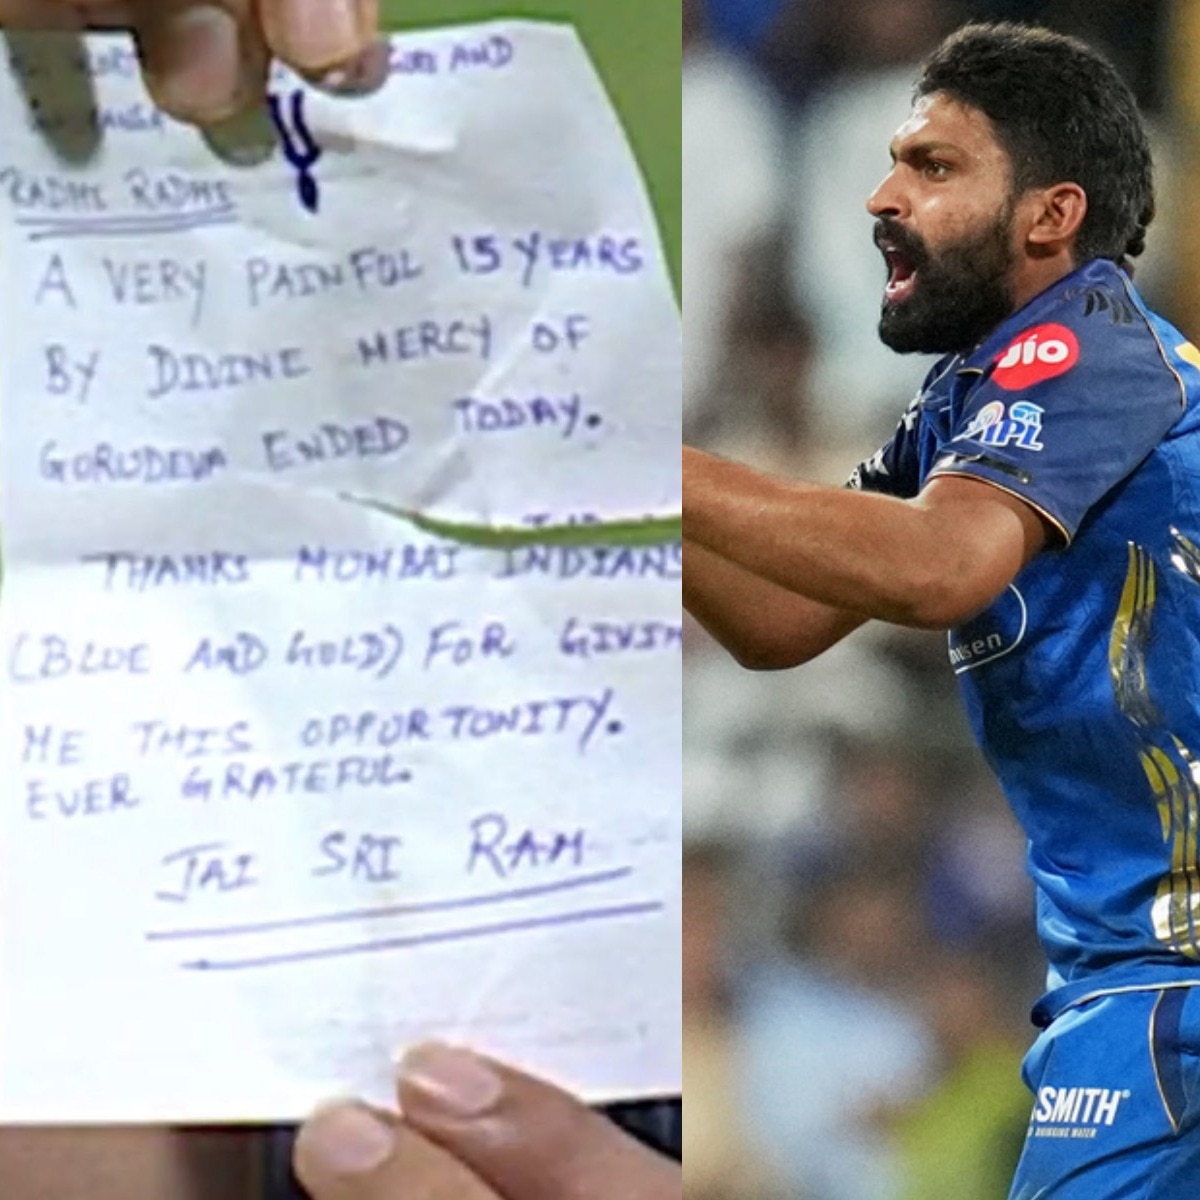 GOD AND
RADHE RADHE
A VERY PAINFUL 15 YEARS
BY DIVINE MERCY OF
GORUDEVA ENDED TODAY.
THANKS MUMBAI INDIANS
(BLUE AND GOLD) FOR
ME THIS OPPORTUNITY.
EVER GRATEFUL.
JAI SRI RAM
Jio
IPL
SMITH
DRINKING WATER